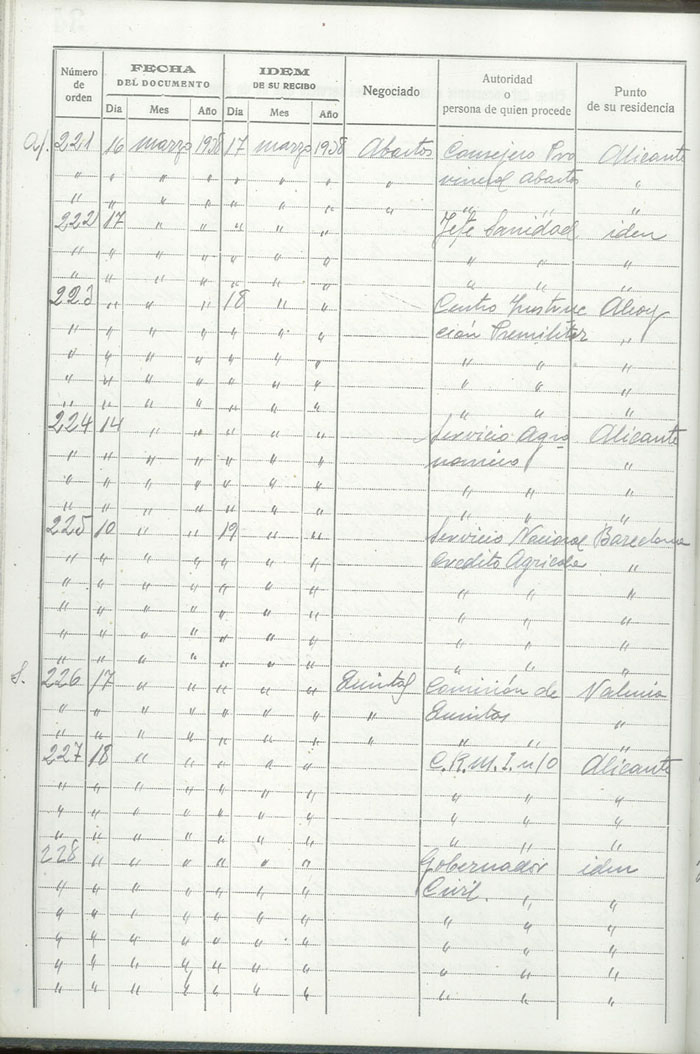 Número de orden | FECHA DEL DOCUMENTO | IDEM DE SU RECIBO | Negociado | Autoridad o persona de quien procede | Punto de su residencia
Dia | Mes | Año | Dia | Mes | Año
221 16 marzo 1938 17 marzo 1938 Abastos Consejero Pro Alicante
" " " " " " " " vincial Abastos "
" " " " " " " " " " "
222 17 " " " " " Jefe Sanidad iden
" " " " " " " " " "
" " " " " " " " " "
223 " " " 18 " " Centro Instruc Alcoy
" " " " " " " ción Premilitar "
" " " " " " " " " "
" " " " " " " " " "
" " " " " " " " " "
224 14 " " " " " Servicio Agro Alicante
" " " " " " " nomico "
" " " " " " " " " "
" " " " " " " " " "
225 10 " " 19 " " Servicio Nacional Barcelona
" " " " " " " Credito Agricola "
" " " " " " " " " "
" " " " " " " " " "
" " " " " " " " " "
" " " " " " " " " "
S. 226 17 " " " " " Quintas Comisión de Valencia
" " " " " " " " Quintas "
" " " " " " " " " " "
227 18 " " " " " C.R.M.I. n/0 Alicante
" " " " " " " " " "
" " " " " " " " " "
" " " " " " " " " "
228 " " " " " " Gobernador iden
" " " " " " " Civil. " "
" " " " " " " " " "
" " " " " " " " " "
" " " " " " " " " "
" " " " " " " " " "